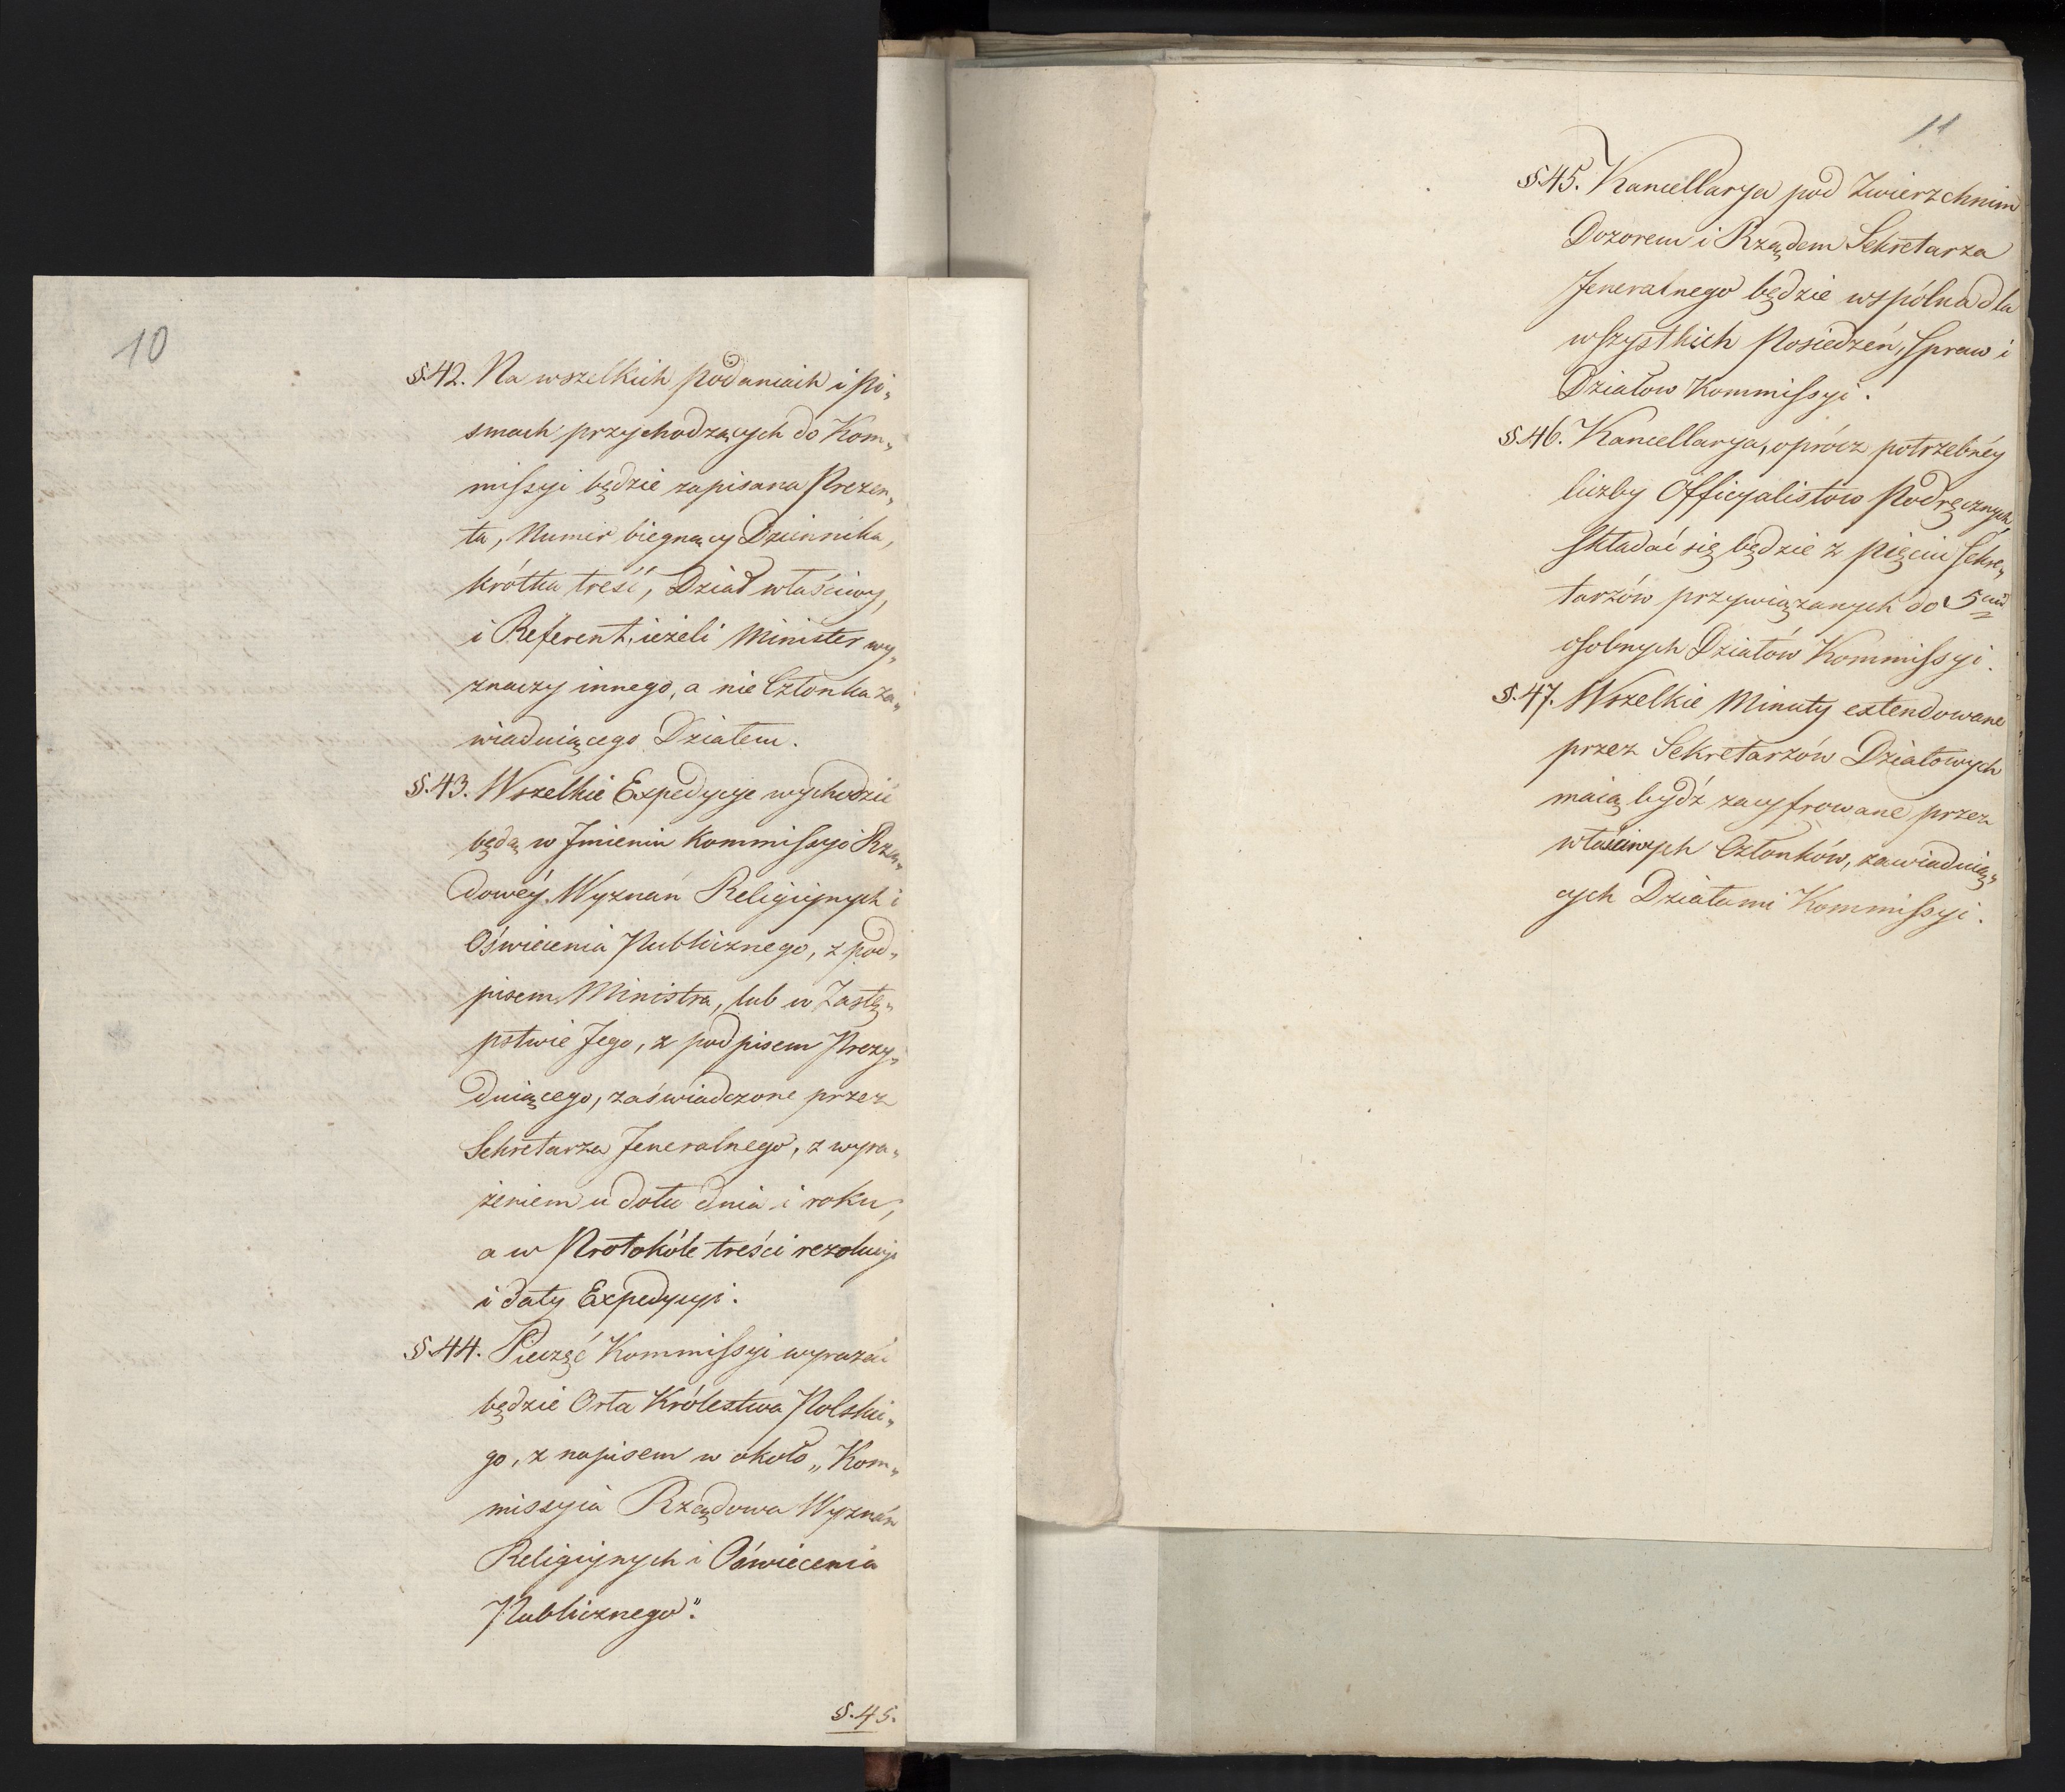 10
§.42. Na wszelkich podaniach i pi„
smach przychodzących do Kom„
missyi będzie zapisana Prezen„
ta, Numer biegnący Dziennika,
krótka treść, Dział właściwy,
i Referent, ieżeli Minister wy„
znaczy innego, a nie Członka za„
wiaduiącego Działem.
§.43. Wszelkie Expedycye wychodzić
będą w Jmieniu Kommissyi Rzą„
dowéy Wyznań Religiynych i
Oświecenia Publicznego, z pod„
pisem Ministra, lub w Zastę„
pstwie Jego, z podpisem Prezy„
duiącego, zaświadczone przez
Sekretarza Jeneralnego, z wyra„
żeniem u dołu dnia i roku,
a w Protokóle treści rezolucyi
i daty Expedycyi.
§.44. Pieczęć Kommissyi wyrażać
będzie Orła Królestwa Polskie„
go, z napisem w około „Kom„
missyia Rządowa Wyznań
Religiynych i Oświecenia
Publicznego".
§.45.
11
§.45. Kancellarya pod Zwierzchnim
Dozorem i Rządem Sekretarza
Jeneralnego będzie wspólna dla
wszystkich Posiedzeń, Spraw i
Działow Kommissyi.
§.46. Kancellarya, oprócz potrzebnéy
liczby Officyalistow Podręcznych
składać się będzie z pięciu Sekre„
tarzów przywiązanych do 5ciu
osobnych Działów Kommissyi.
§.47. Wszelkie Minuty extendowane
przez Sekretarzów Działowych
maią bydź zacyfrowane przez
właściwych Członków, zawiaduią„
cych Działami Kommissyi.